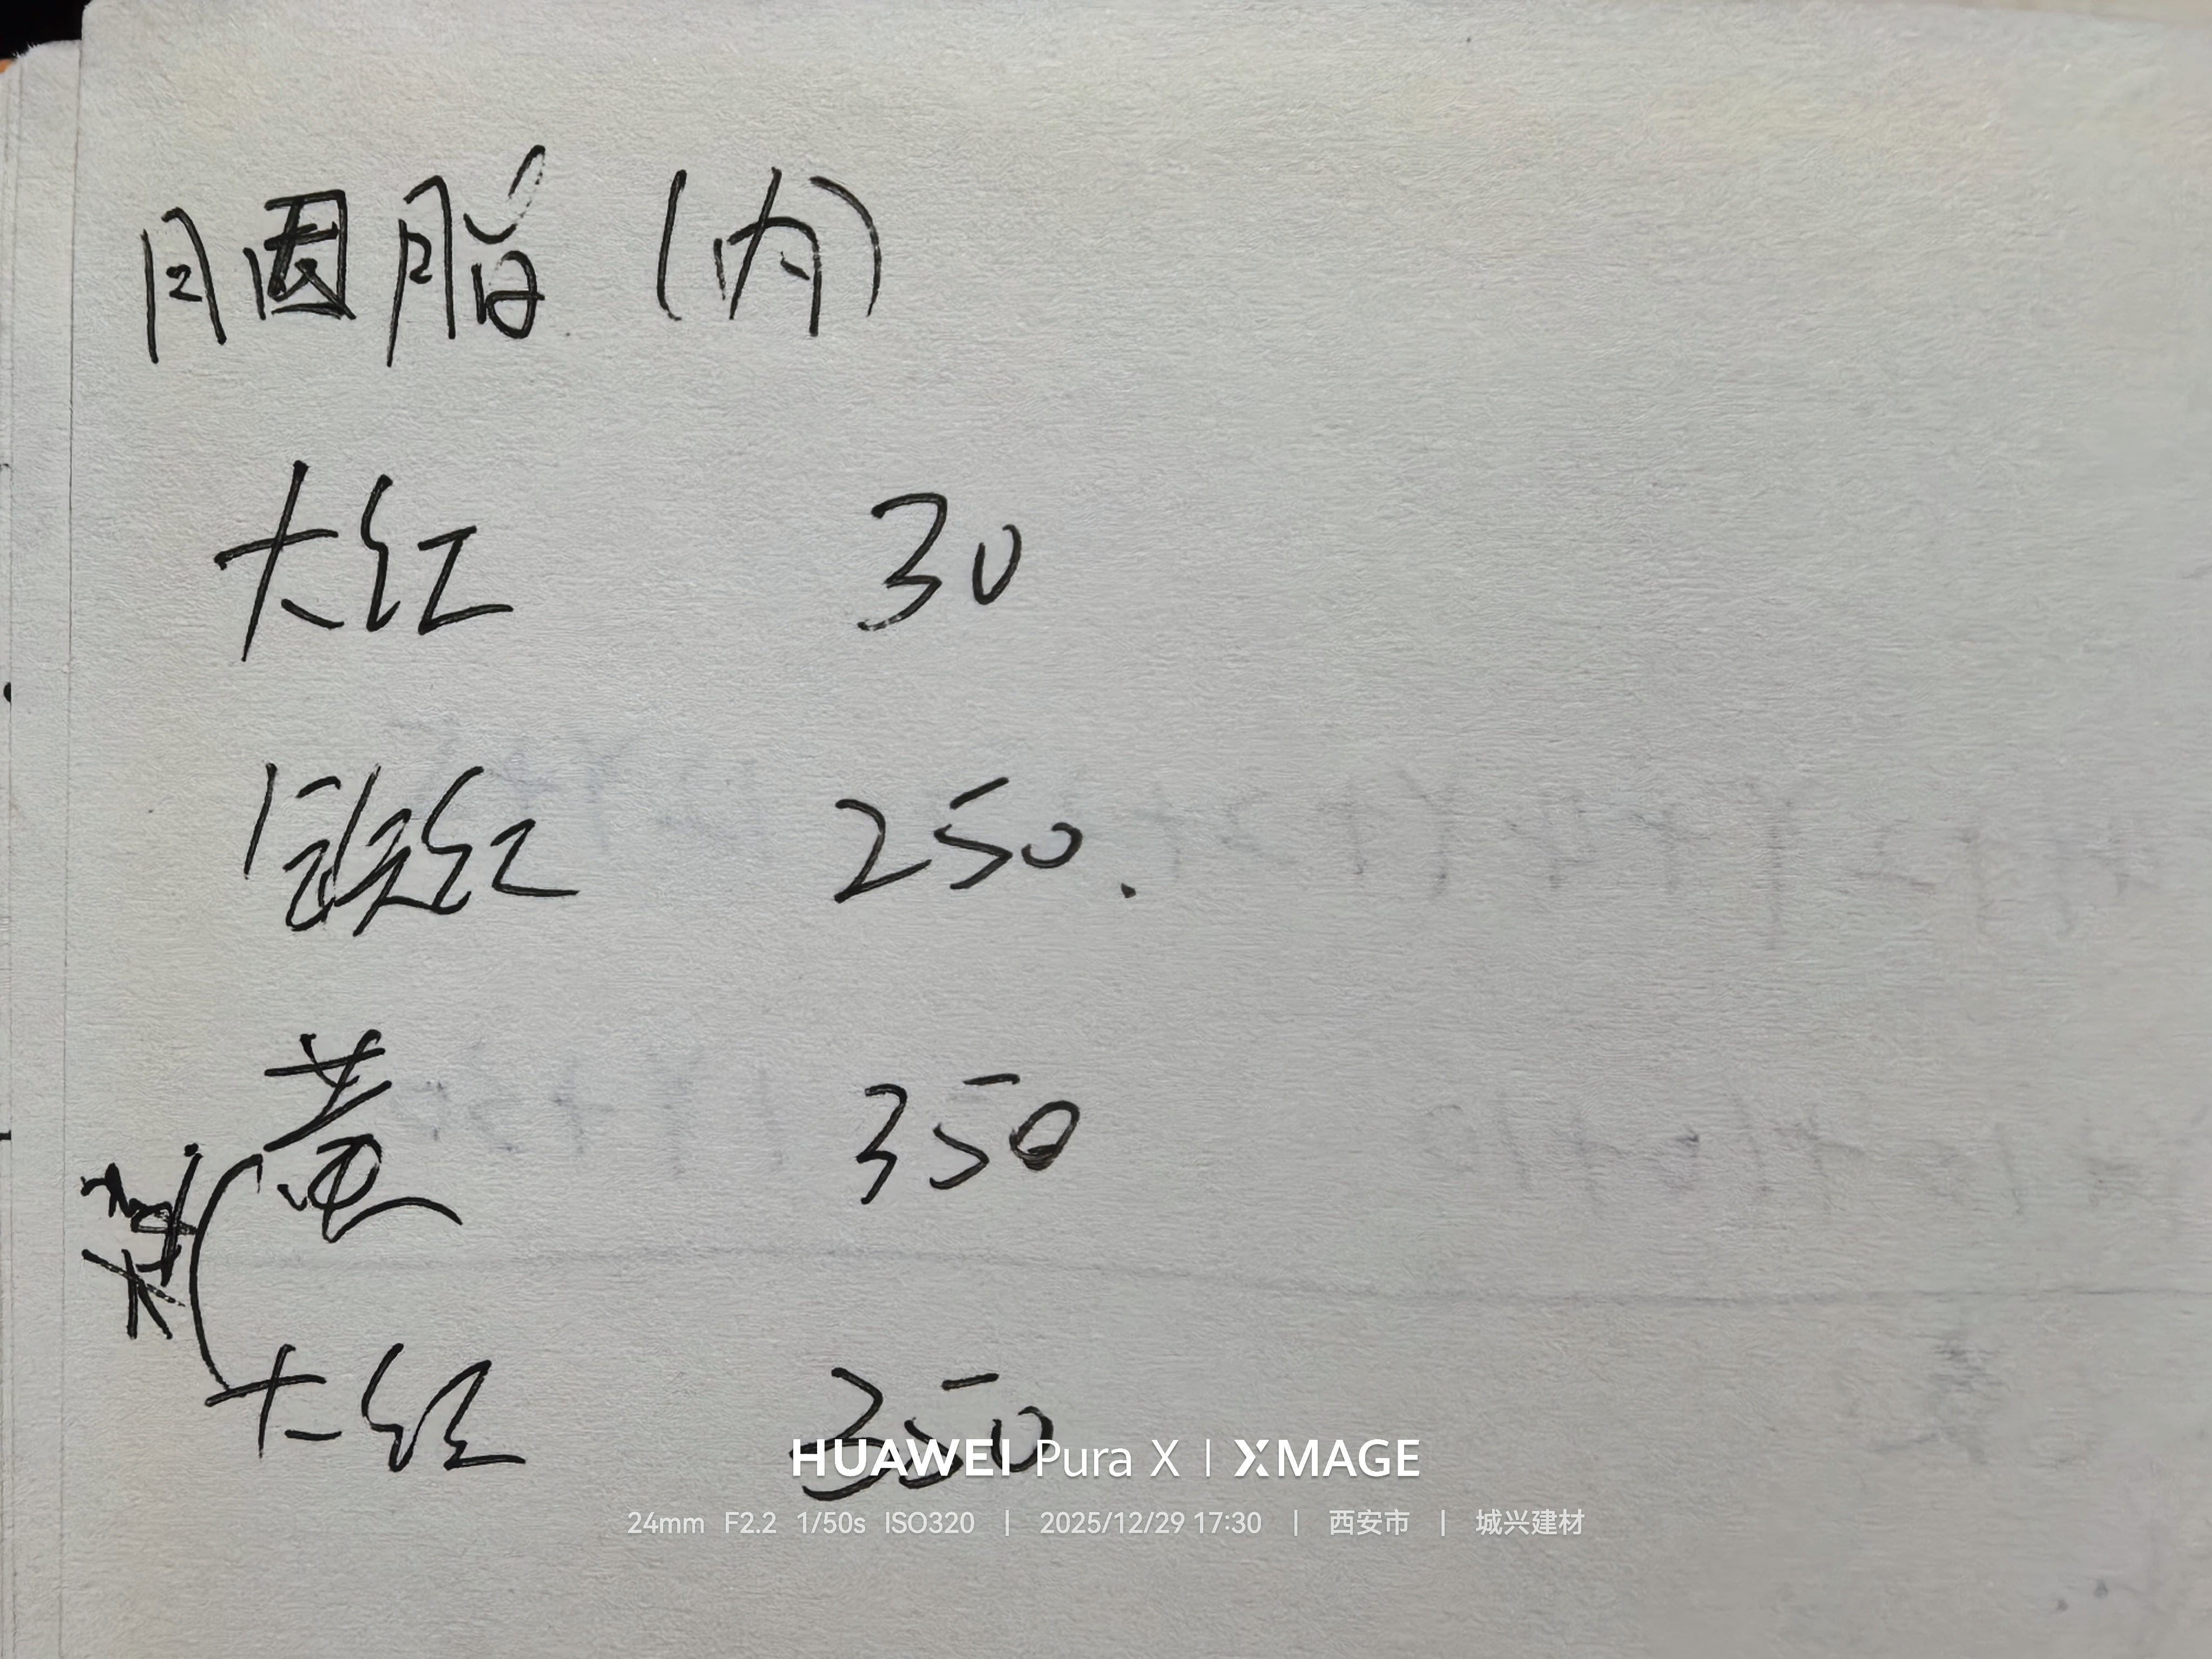 胭脂（内）
大红 30
铁红 250.
黄 350
大红 350
HUAWEI Pura X | XMAGE
24mm F2.2 1/50s ISO320 | 2025/12/29 17:30 | 西安市 | 城兴建材